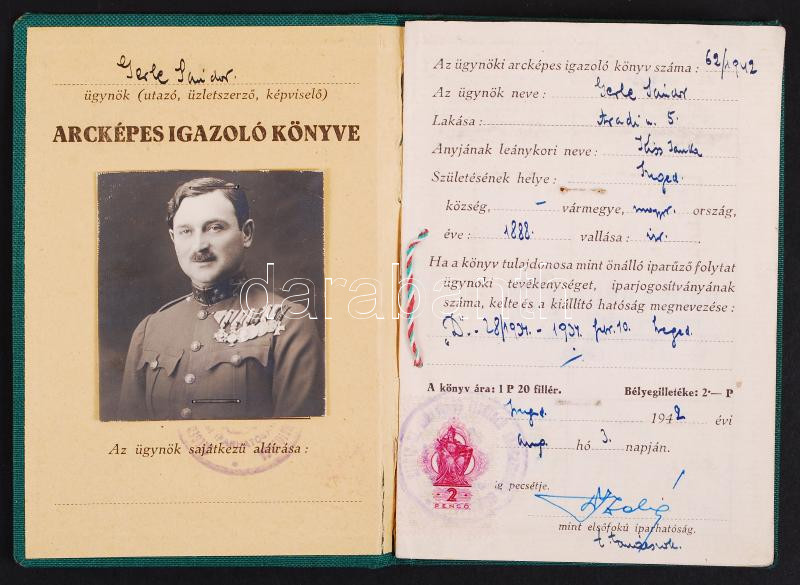 Gerle Sándor.
ügynök (utazó, üzletszerző, képviselő)
ARCKÉPES IGAZOLÓ KÖNYVE
Az ügynök sajátkezű aláírása:
Az ügynöki arcképes igazoló könyv száma: 62/1942
Az ügynök neve: Gerle Sándor
Lakása: Aradi u. 5.
Anyjának leánykori neve: Kiss
Születésének helye: Szeged.
község, – vármegye, magy. ország,
éve: 1888. vallása: izr.
Ha a könyv tulajdonosa mint önálló iparűző folytat
ügynöki tevékenységet, iparjogosítványának
száma, kelte és a kiállító hatóság megnevezése:
"D".-28/1937.-1937. febr. 10. Szeged.
A könyv ára: 1 P 20 fillér. Bélyegilletéke: 2·— P
Szeged. 1942 évi
aug. hó 3. napján.
2
PENGŐ
ig pecsétje.
mint elsőfokú iparhatóság.
t. tanácsnok.
darabanth